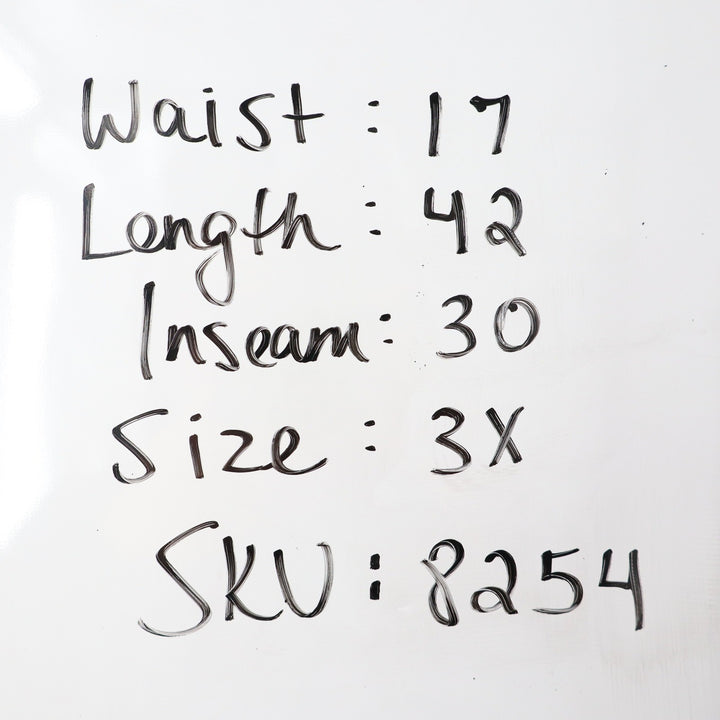 Waist : 17
Length : 42
Inseam : 30
Size : 3X
SKU : 8254